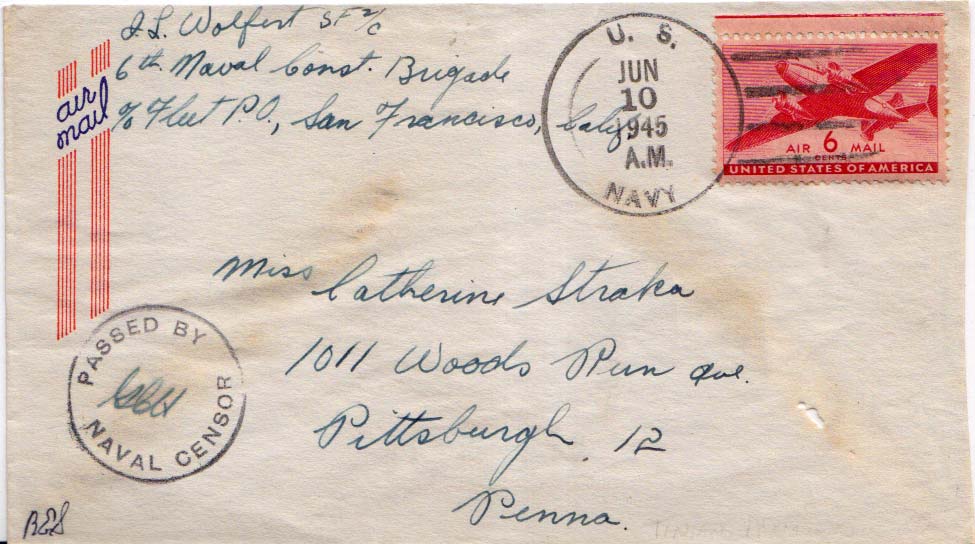 J. L. Wolfert SF 2/c
6th Naval Const. Brigade
c/o Fleet P.O., San Francisco, Calif.
air
mail
U. S.
JUN
10
1945
A.M.
NAVY
AIR 6 MAIL
CENTS
UNITED STATES OF AMERICA
Miss Catherine Straka
1011 Woods Run Ave.
Pittsburgh 12
Penna.
PASSED BY
NAVAL CENSOR